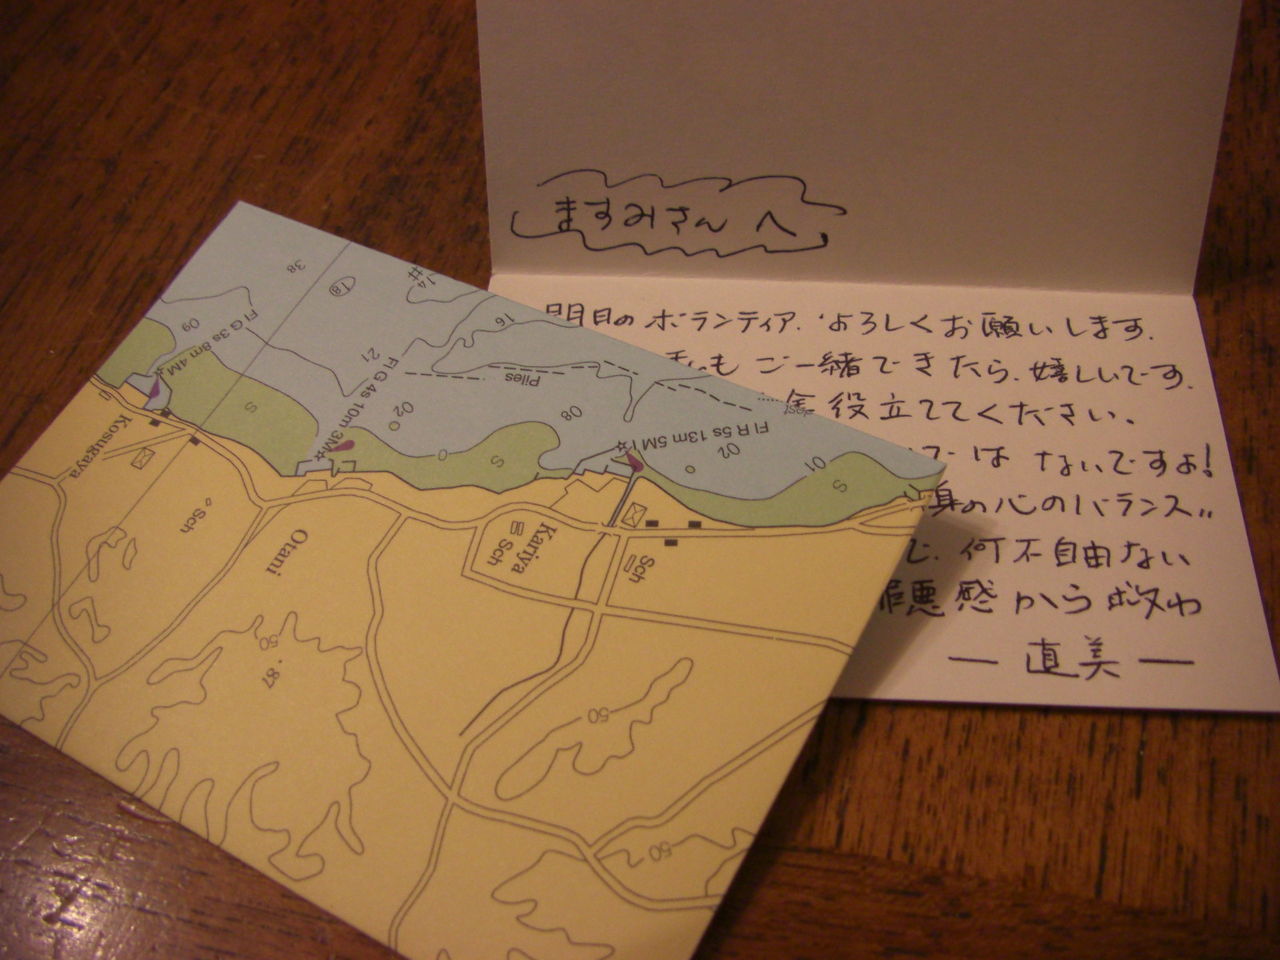 ますみさんへ
のボランティア.よろしくお願いします.
もご一緒できたら.嬉しいです.
役立ててください.
ではないですよ!
身の心のバランス..
何不自由ない
罪悪感から救わ
― 直美 ―
38
18
14
16
09
Fl G 3s 8m 4M
21
Fl G 4s 10m 3M
02
Piles
08
Fl R 5s 13m 5M
02
01
S
S
S
Kosugaya
Sch
Otani
Kariya
Sch
Sch
50
·87
50
50